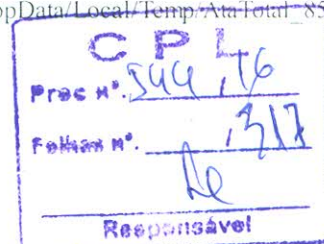 ppData/Local/Temp/AtaTotal_85
C P L
Proc Nº. 544,16
Folhas Nº. ,317
Responsável